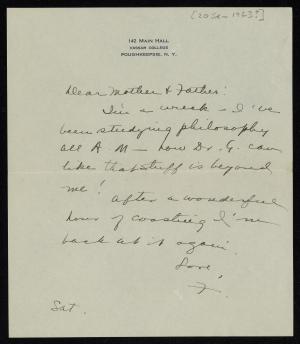 [20 Jan 1923?]
142 MAIN HALL
VASSAR COLLEGE
POUGHKEEPSIE, N. Y.
Dear Mother & Father:
I'm a wreck - I've
been studying philosophy
all A M - how Dr. G. can
like that stuff is beyond
me! After a wonderful
hour of coasting I'm
back at it again.
Love,
F.
Sat.